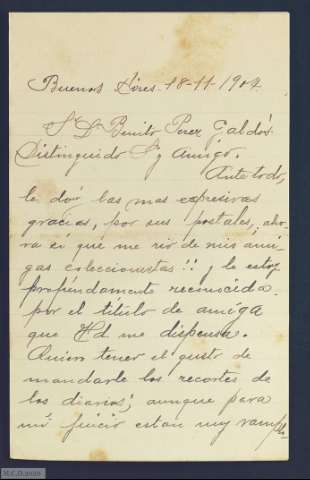 Buenos Aires 18-11-1904.
Sr Dn Benito Perez Galdós
Distinguido Sr y amigo.
Ante todo,
le doy las mas expresivas
gracias, por sus postales, aho-
ra si que me rio de mis ami-
gas coleccionistas!! y le estoy
profundamente reconocida
por el título de amiga
que Vd me dispensa.
Quiero tener el gusto de
mandarle los recortes de
los diarios, aunque para
mi juicio estan muy